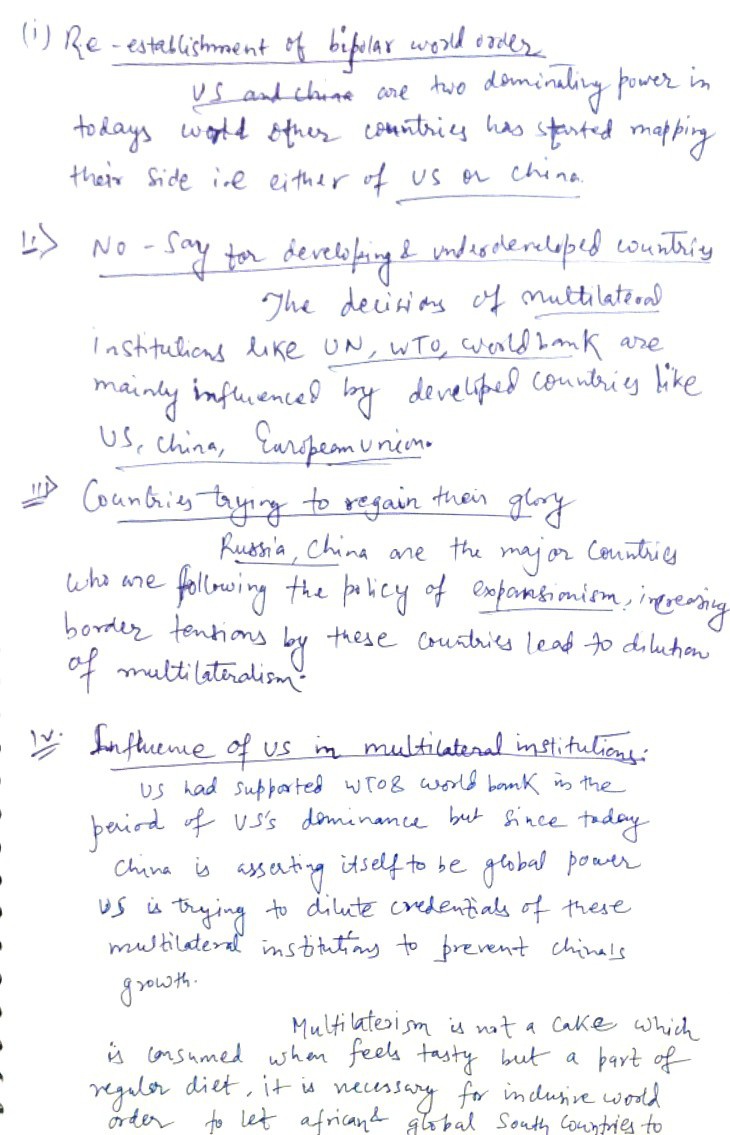 (i) Re-establishment of bipolar world order
US and China are two dominating power in
todays world other countries has started mapping
their side i.e either of US or China.
ii> No-Say for developing & underdeveloped countries
The decisions of multilateral
institutions like UN, WTO, world bank are
mainly influenced by developed countries like
US, China, European union.
iii> Countries trying to regain their glory
Russia, China are the major countries
who are following the policy of expansionism, increasing
border tensions by these countries lead to dilution
of multilateralism.
iv. Influence of US in multilateral institutions:
US had supported WTO & world bank in the
period of US's dominance but since today
China is asserting itself to be global power
US is trying to dilute credentials of these
multilateral institutions to prevent china's
growth.
Multilaterism is not a cake which
is consumed when feels tasty but a part of
regular diet, it is necessary for inclusive world
order to let african & global South Countries to